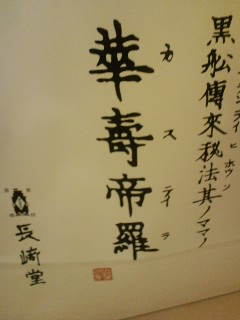 黒舩傳來秘法其ノママノ
ヒホウ
華壽帝羅
カステイラ
長崎堂